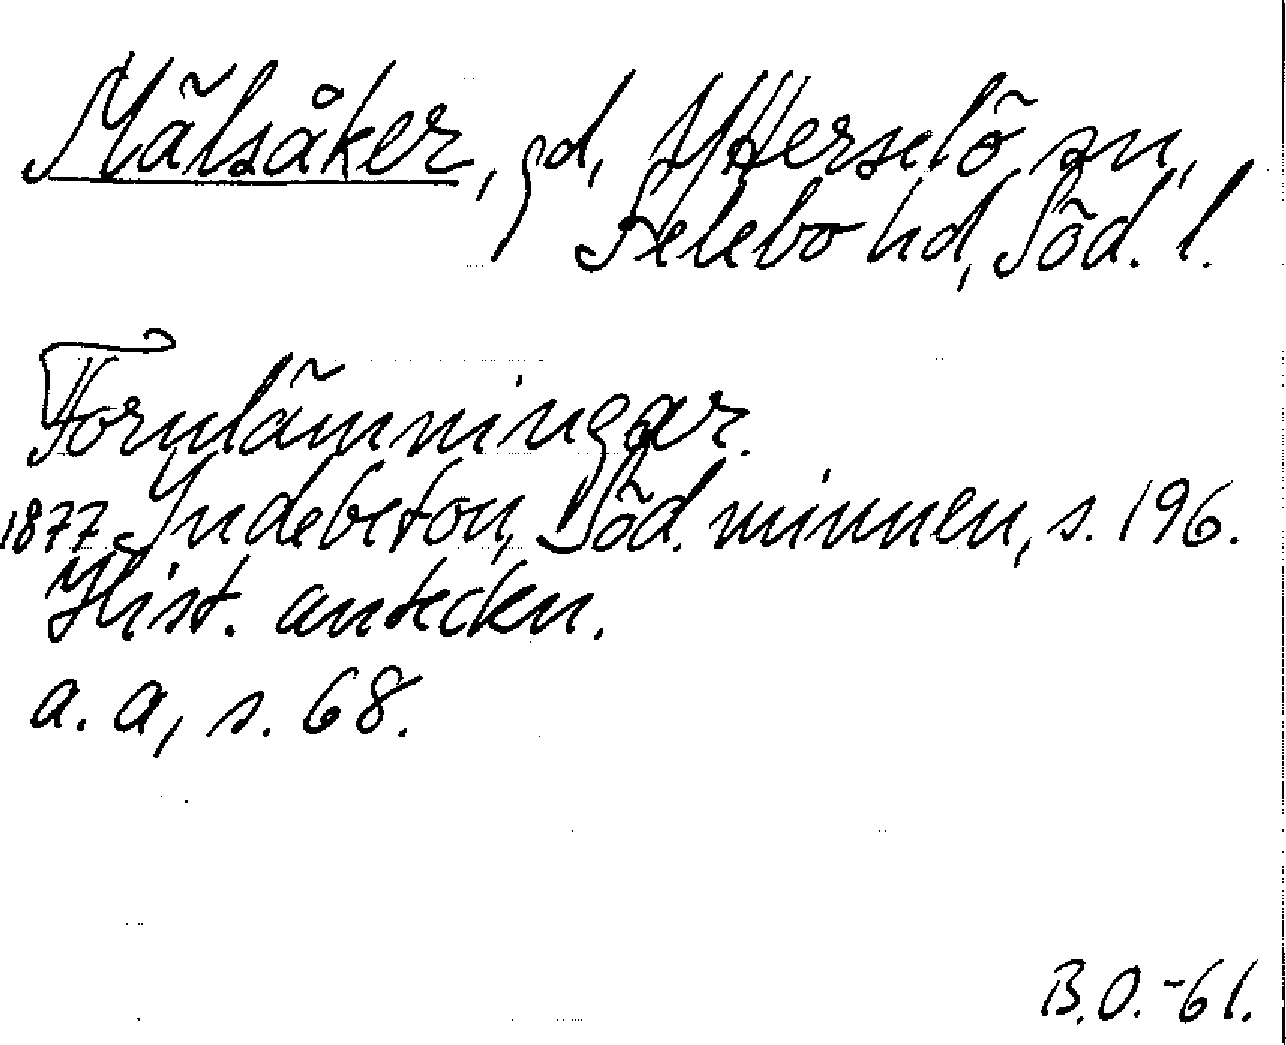 Mälsåker, gd, Ytterselö sn,
Selebo hd, Söd. l.
Fornlämningar.
1877 Indebetou, Söd. minnen, s. 196.
Hist. anteckn.
a. a, s. 68.
B.O.-61.